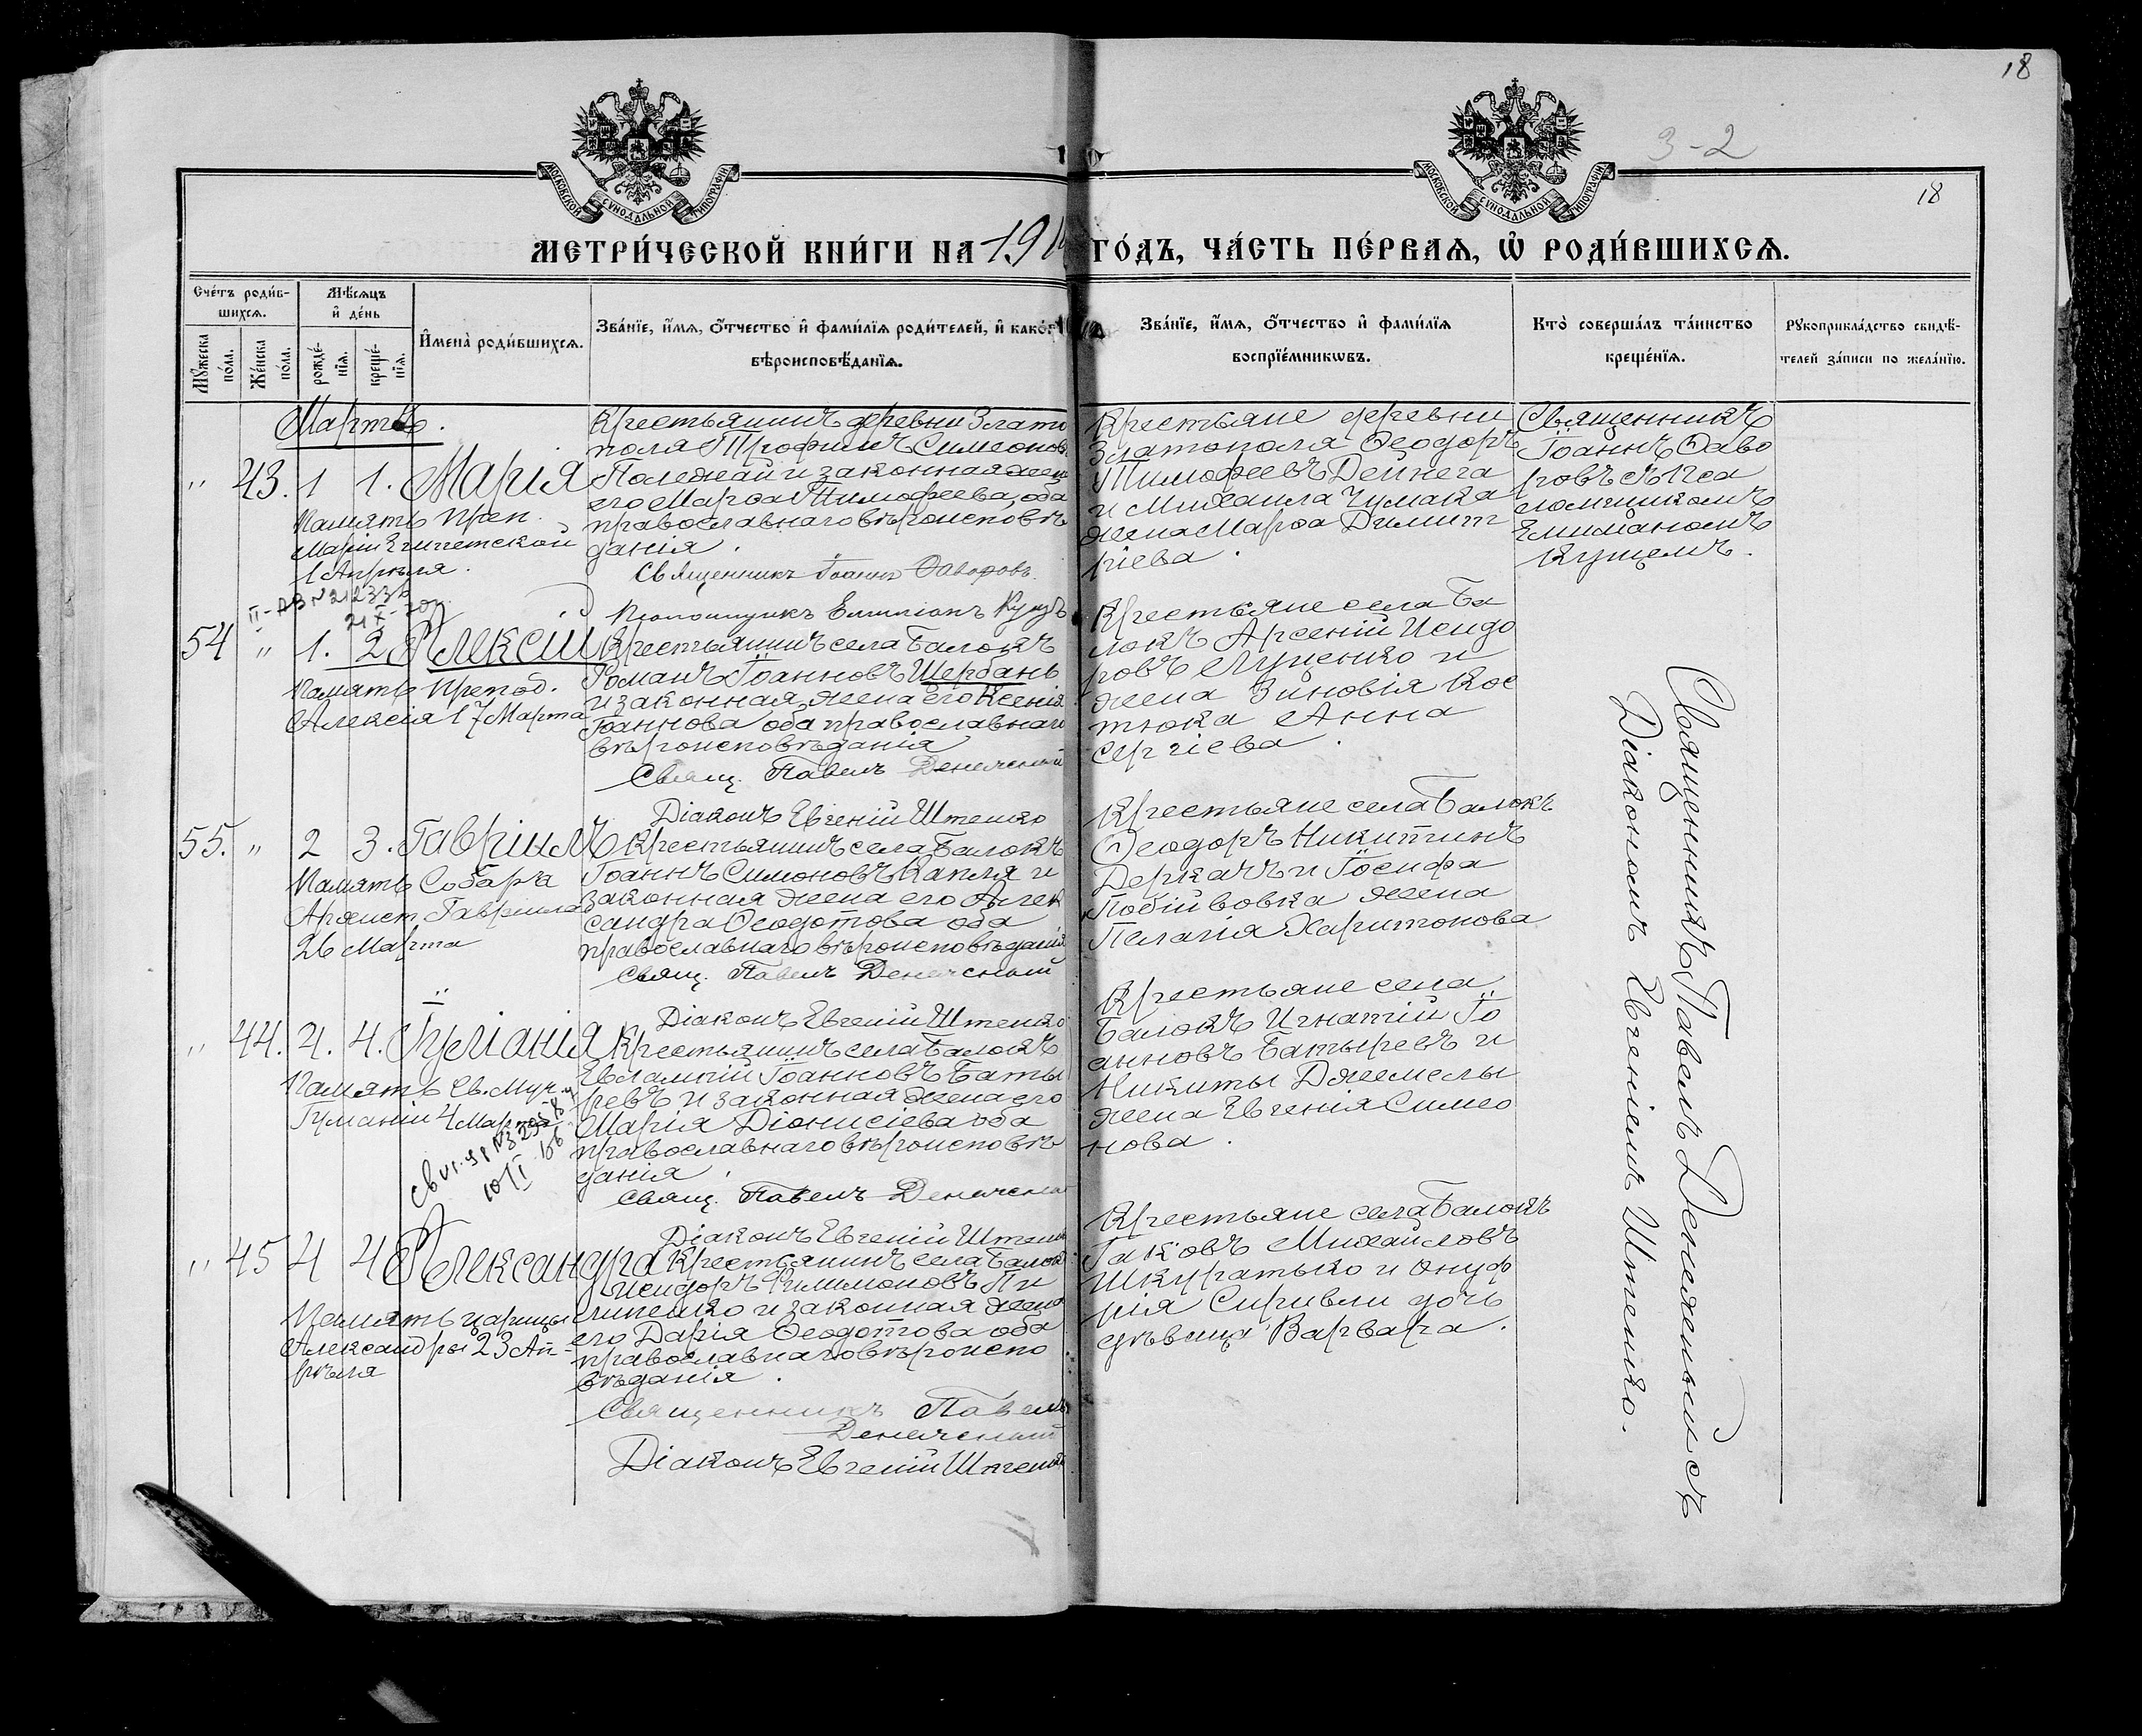 18
3-2
18
МОСКОВСКОЙ СѴНОДАЛЬНОЙ ТИПОГРАФІИ
МОСКОВСКОЙ СѴНОДАЛЬНОЙ ТИПОГРАФІИ
МЕТРИ́ЧЕСКОЙ КНИ́ГИ НА 191
ГО́ДЪ, ЧА́СТЬ ПЕ́РВАѦ, Ѿ РОДИ́ВШИХСѦ.
Сче́тъ роди́в-
шихсѧ.
Мꙋ́жеска
по́ла.
Же́нска
по́ла.
Мѣ́сѧцъ
и҆ де́нь
рожде́-
нїѧ.
креще́-
нїѧ.
И҆мена̀ роди́вшихсѧ.
Зва́нїе, и҆́мѧ, ѻ҆́тчество и҆ фами́лїѧ роди́телей, и҆ како́гѡ
вѣроисповѣ́данїѧ.
Зва́нїе, и҆́мѧ, ѻ҆́тчество и҆ фами́лїѧ
воспрїе́мникѡвъ.
Кто̀ соверша́лъ та́инство
креще́нїѧ.
Рꙋкоприкла́дство свидѣ́-
телей за́писи по жела́нїю.
Мартъ.
" 43. 1 1. Марія
Память преп.
Маріи Египетской
1 Апрѣля.
Крестьянинъ деревни Злато
поля Трофимъ Симеоновъ
Полежай и законная жена
его Марѳа Тимофеева, оба
православнаго вѣроисповѣ
данія.
Священникъ Іоаннъ Ѳаворовъ.
Псаломщикъ Емиліанъ Кущъ
Крестьяне деревни
Златополя Ѳеодоръ
Тимофеевъ Дейнега
и Михаила Чумака
жена Марѳа Димит
ріева.
Священникъ
Іоаннъ Ѳаво
ровъ съ Пса
ломщикомъ
Емиліаномъ
Кущемъ.
54 " 1. 2 Алексій
Память препод.
Алексія 17 Марта
Крестьянинъ села Балокъ
Романъ Іоанновъ Щербань
и законная жена его Ксенія
Іоаннова оба православнаго
вѣроисповѣданія
Свящ. Павелъ
Діаконъ Евгеній Штенко
Крестьяне села Ба
локъ Арсеній Исидо
ровъ Луценко и
жена Зиновія Кос
тюка Анна
Сергіева.
55. " 2 3. Гавріилъ
Память Собора
Архист. Гавріила
26 Марта
Крестьянинъ села Балокъ
Іоаннъ Симоновъ Капля и
законная жена его Алек
сандра Ѳеодотова оба
православнаго вѣроисповѣданія
Свящ. Павелъ
Діаконъ Евгеній Штенко
Крестьяне села Балокъ
Ѳеодоръ Никитинъ
Деркачъ и Іосифа
Побійвовка жена
Пелагія Харитонова
" 44. 4. 4. Іуліанія
Память св. Муч.
Іуліаніи 4 Марта
Крестьянинъ села Балокъ
Евлампій Іоанновъ Баты
ревъ и законная жена его
Марія Діонисіева оба
православнаго вѣроисповѣ
данія.
Свящ. Павелъ
Діаконъ Евгеній
Крестьяне села
Балокъ Игнатій Іо
анновъ Батыревъ и
Никиты Джемелы
жена Евгенія Симео
нова.
" 45 4 4 Александра
Память царицы
Александры 23 Ап-
рѣля
Крестьянинъ села Балокъ
Исидоръ Филимоновъ Пи
липенко и законная жена
его Дарія Ѳеодотова оба
православнаго вѣроиспо
вѣданія.
Священникъ Павелъ
Діаконъ Евгеній
Крестьяне села Балокъ
Іаковъ Михайловъ
Шкуратько и Онуф
рія дочь
дѣвица Варвара.
Священникъ Павелъ съ
Діакономъ Евгеніемъ Штенко.